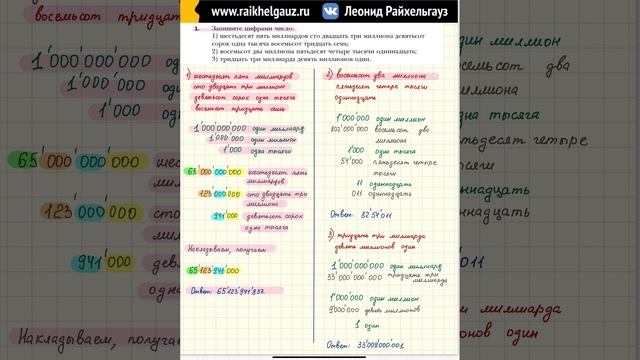 www.raikhelgauz.ru Леонид Райхельгауз
1. Запишите цифрами число:
1) шестьдесят пять миллиардов сто двадцать три миллиона девятьсот
сорок одна тысяча восемьсот тридцать семь;
2) восемьсот два миллиона пятьдесят четыре тысячи одиннадцать;
3) тридцать три миллиарда девять миллионов один.
1) шестьдесят пять миллиардов
сто двадцать три миллиона
девятьсот сорок одна тысяча
восемьсот тридцать семь
1'000'000'000 один миллиард
1'000'000 один миллион
1'000 одна тысяча
65'000'000'000 шестьдесят пять
миллиардов
123'000'000 сто двадцать три
миллиона
941'000 девятьсот сорок
одна тысяча
Накладываем, получаем
65'123'941'000
Ответ: 65'123'941'837.
2) восемьсот два миллиона
пятьдесят четыре тысячи
одиннадцать
1'000'000 один миллион
802'000'000 восемьсот два
миллиона
1'000 одна тысяча
54'000 пятьдесят четыре
тысячи
11 одиннадцать
011 одиннадцать
Ответ:
3) тридцать три миллиарда
девять миллионов один
1'000'000'000 один миллиард
33'000'000'000 тридцать три
миллиарда
1'000'000 один миллион
9'000'000 девять миллионов
1 один
Ответ: 33'009'000'001